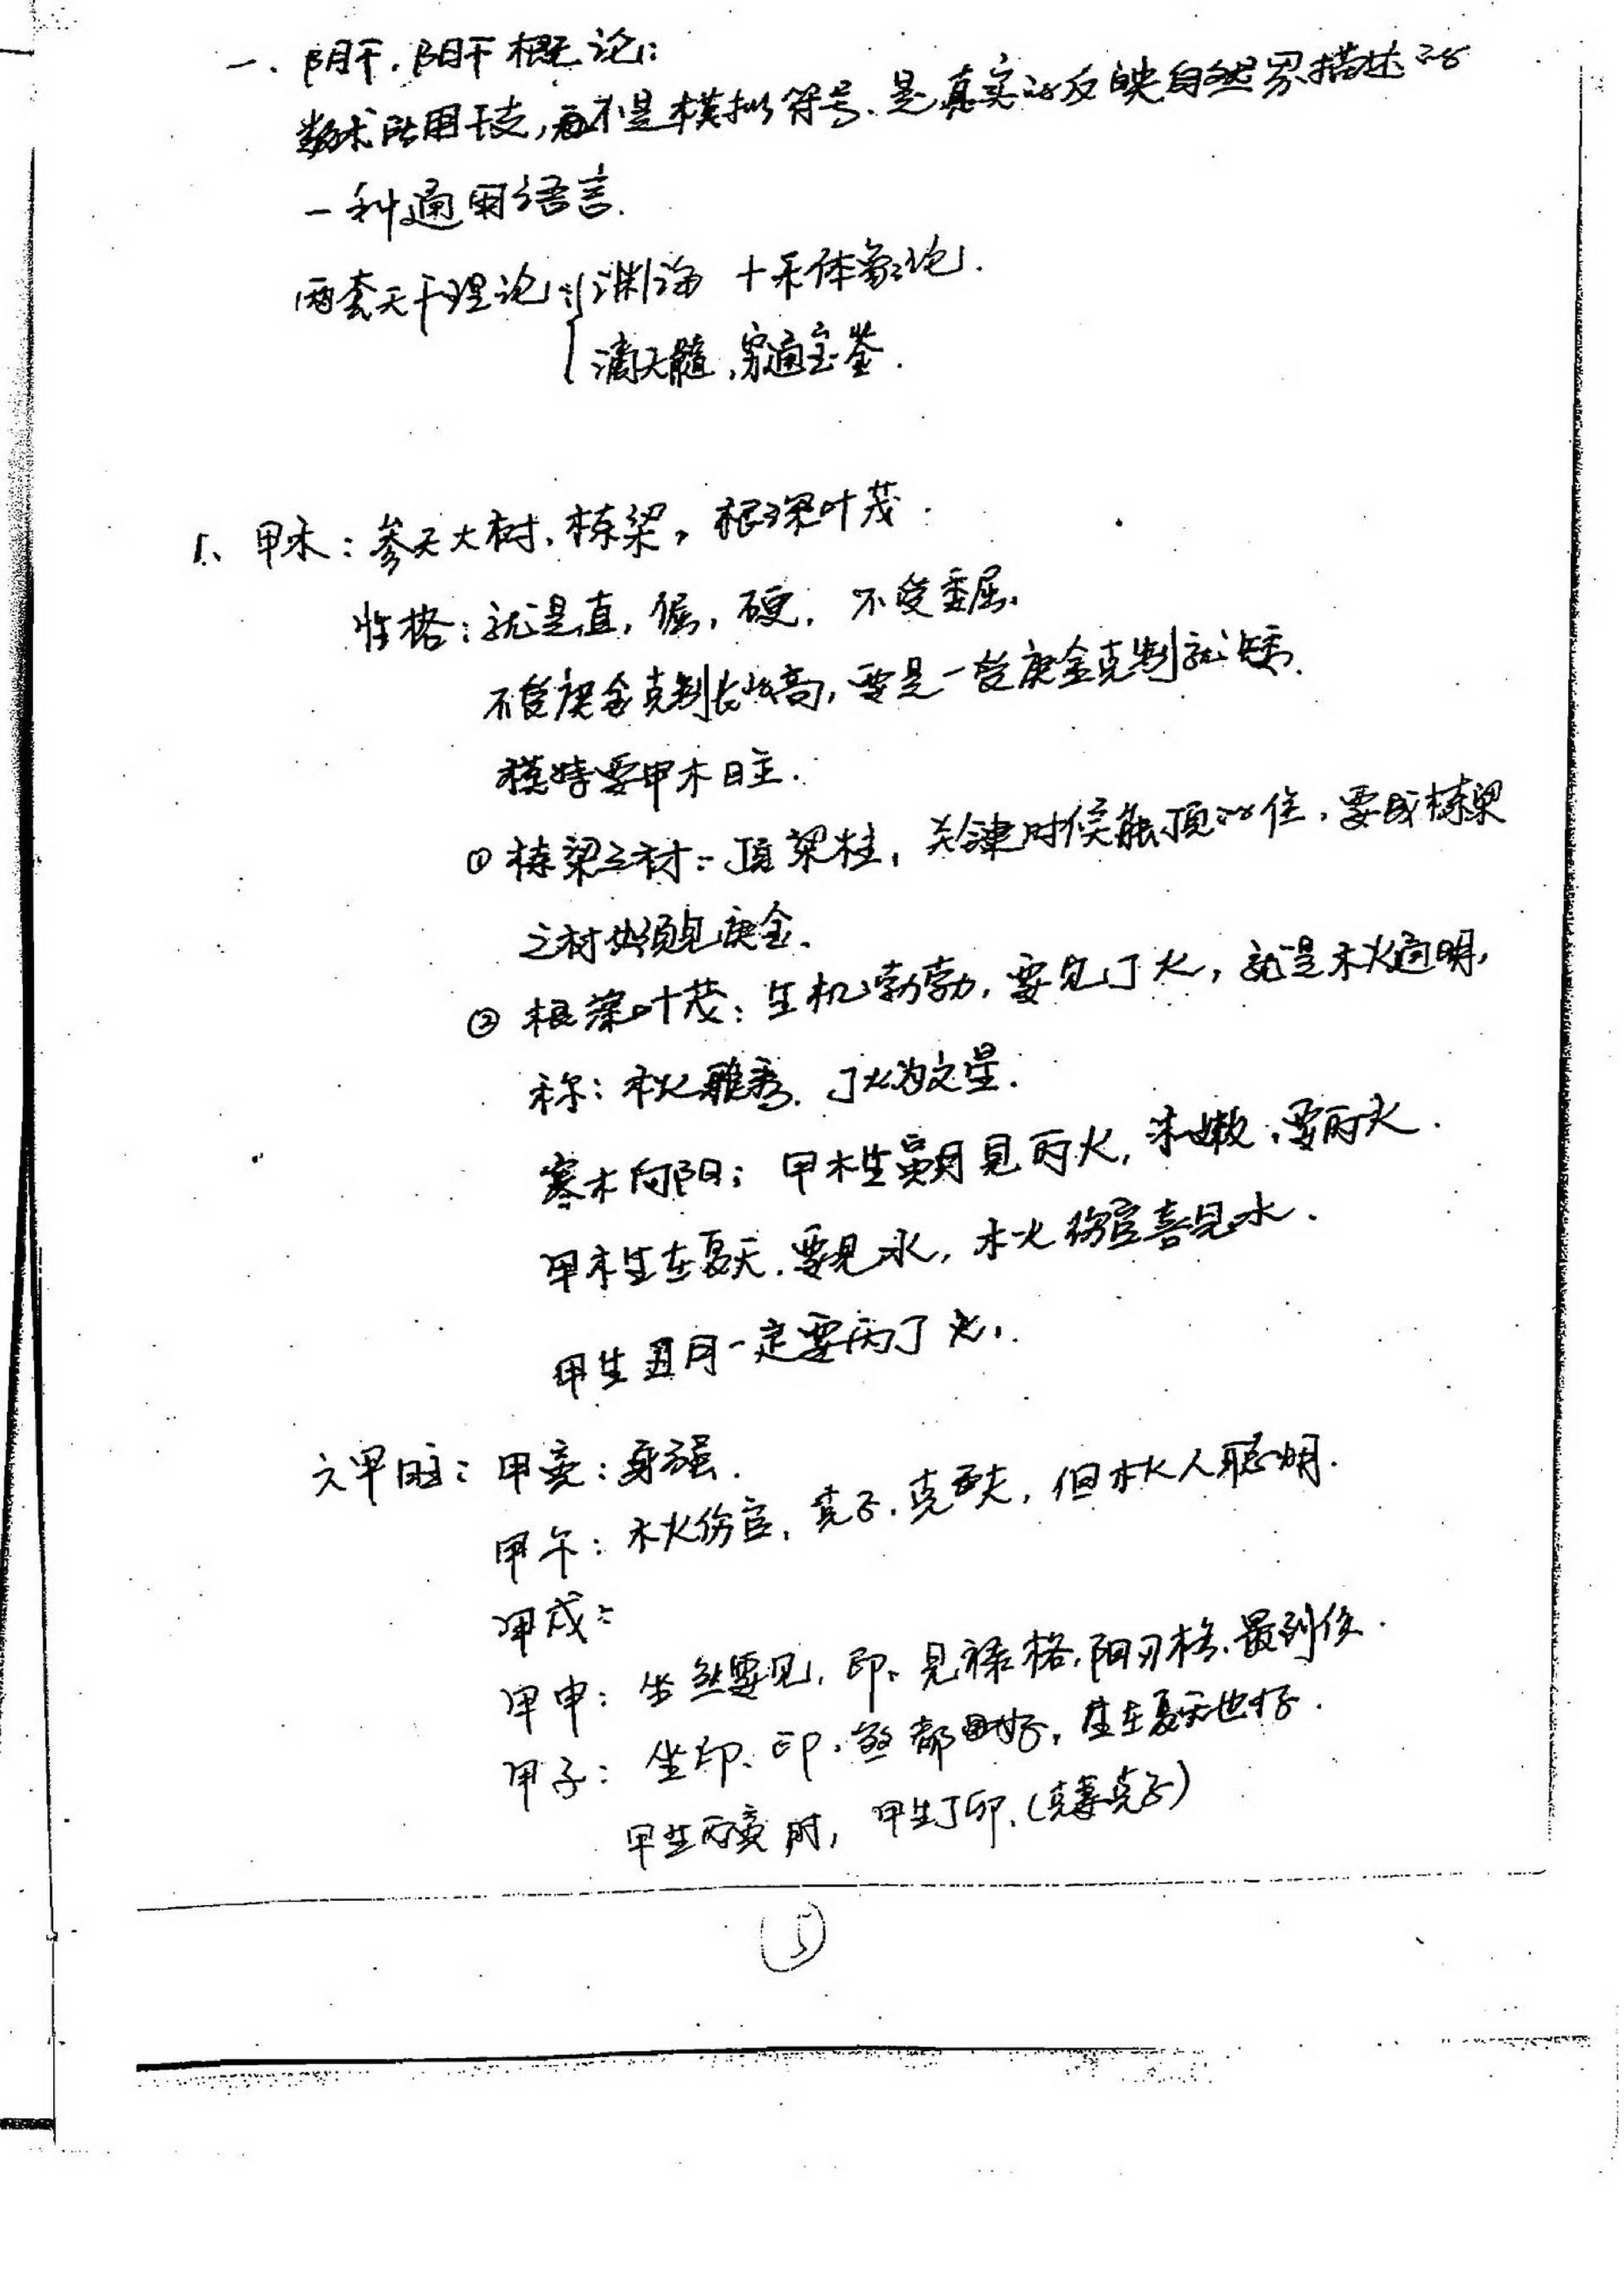 一、阴干.阳干概论:
数术所用干支,而不是模拟符号.是真实的反映自然界描述的
一种通用语言.
两套天干理论:渊海 十干体象论.
滴天髓,穷通宝鉴.
1、甲木:参天大树,栋梁,根深叶茂.
性格:就是直,倔,硬,不受委屈.
不受庚金克制长得高,要是一受庚金克制就矮.
模特要甲木日主.
① 栋梁之材:顶梁柱,关津时候能顶的住,要成栋梁
之材必须见庚金.
② 根深叶茂:生机勃勃,要见丁火,就是木火通明,
称:木火雅秀.丁火为文星.
寒木向阳:甲木生寅月见丙火,木嫩,要丙火.
甲木生在夏天.要见水,木火伤官喜见水.
甲生丑月一定要丙丁火.
六甲日主:甲亥:身强.
甲午:木火伤官,克子.克夫,但木火人聪明.
甲戌:
甲申:坐煞要见,印、见禄格,阳刃格.最刭伤.
甲子:坐印、印.煞都好,生在夏天也好.
甲生丙寅时,甲生丁卯.(克妻克子)
⑤